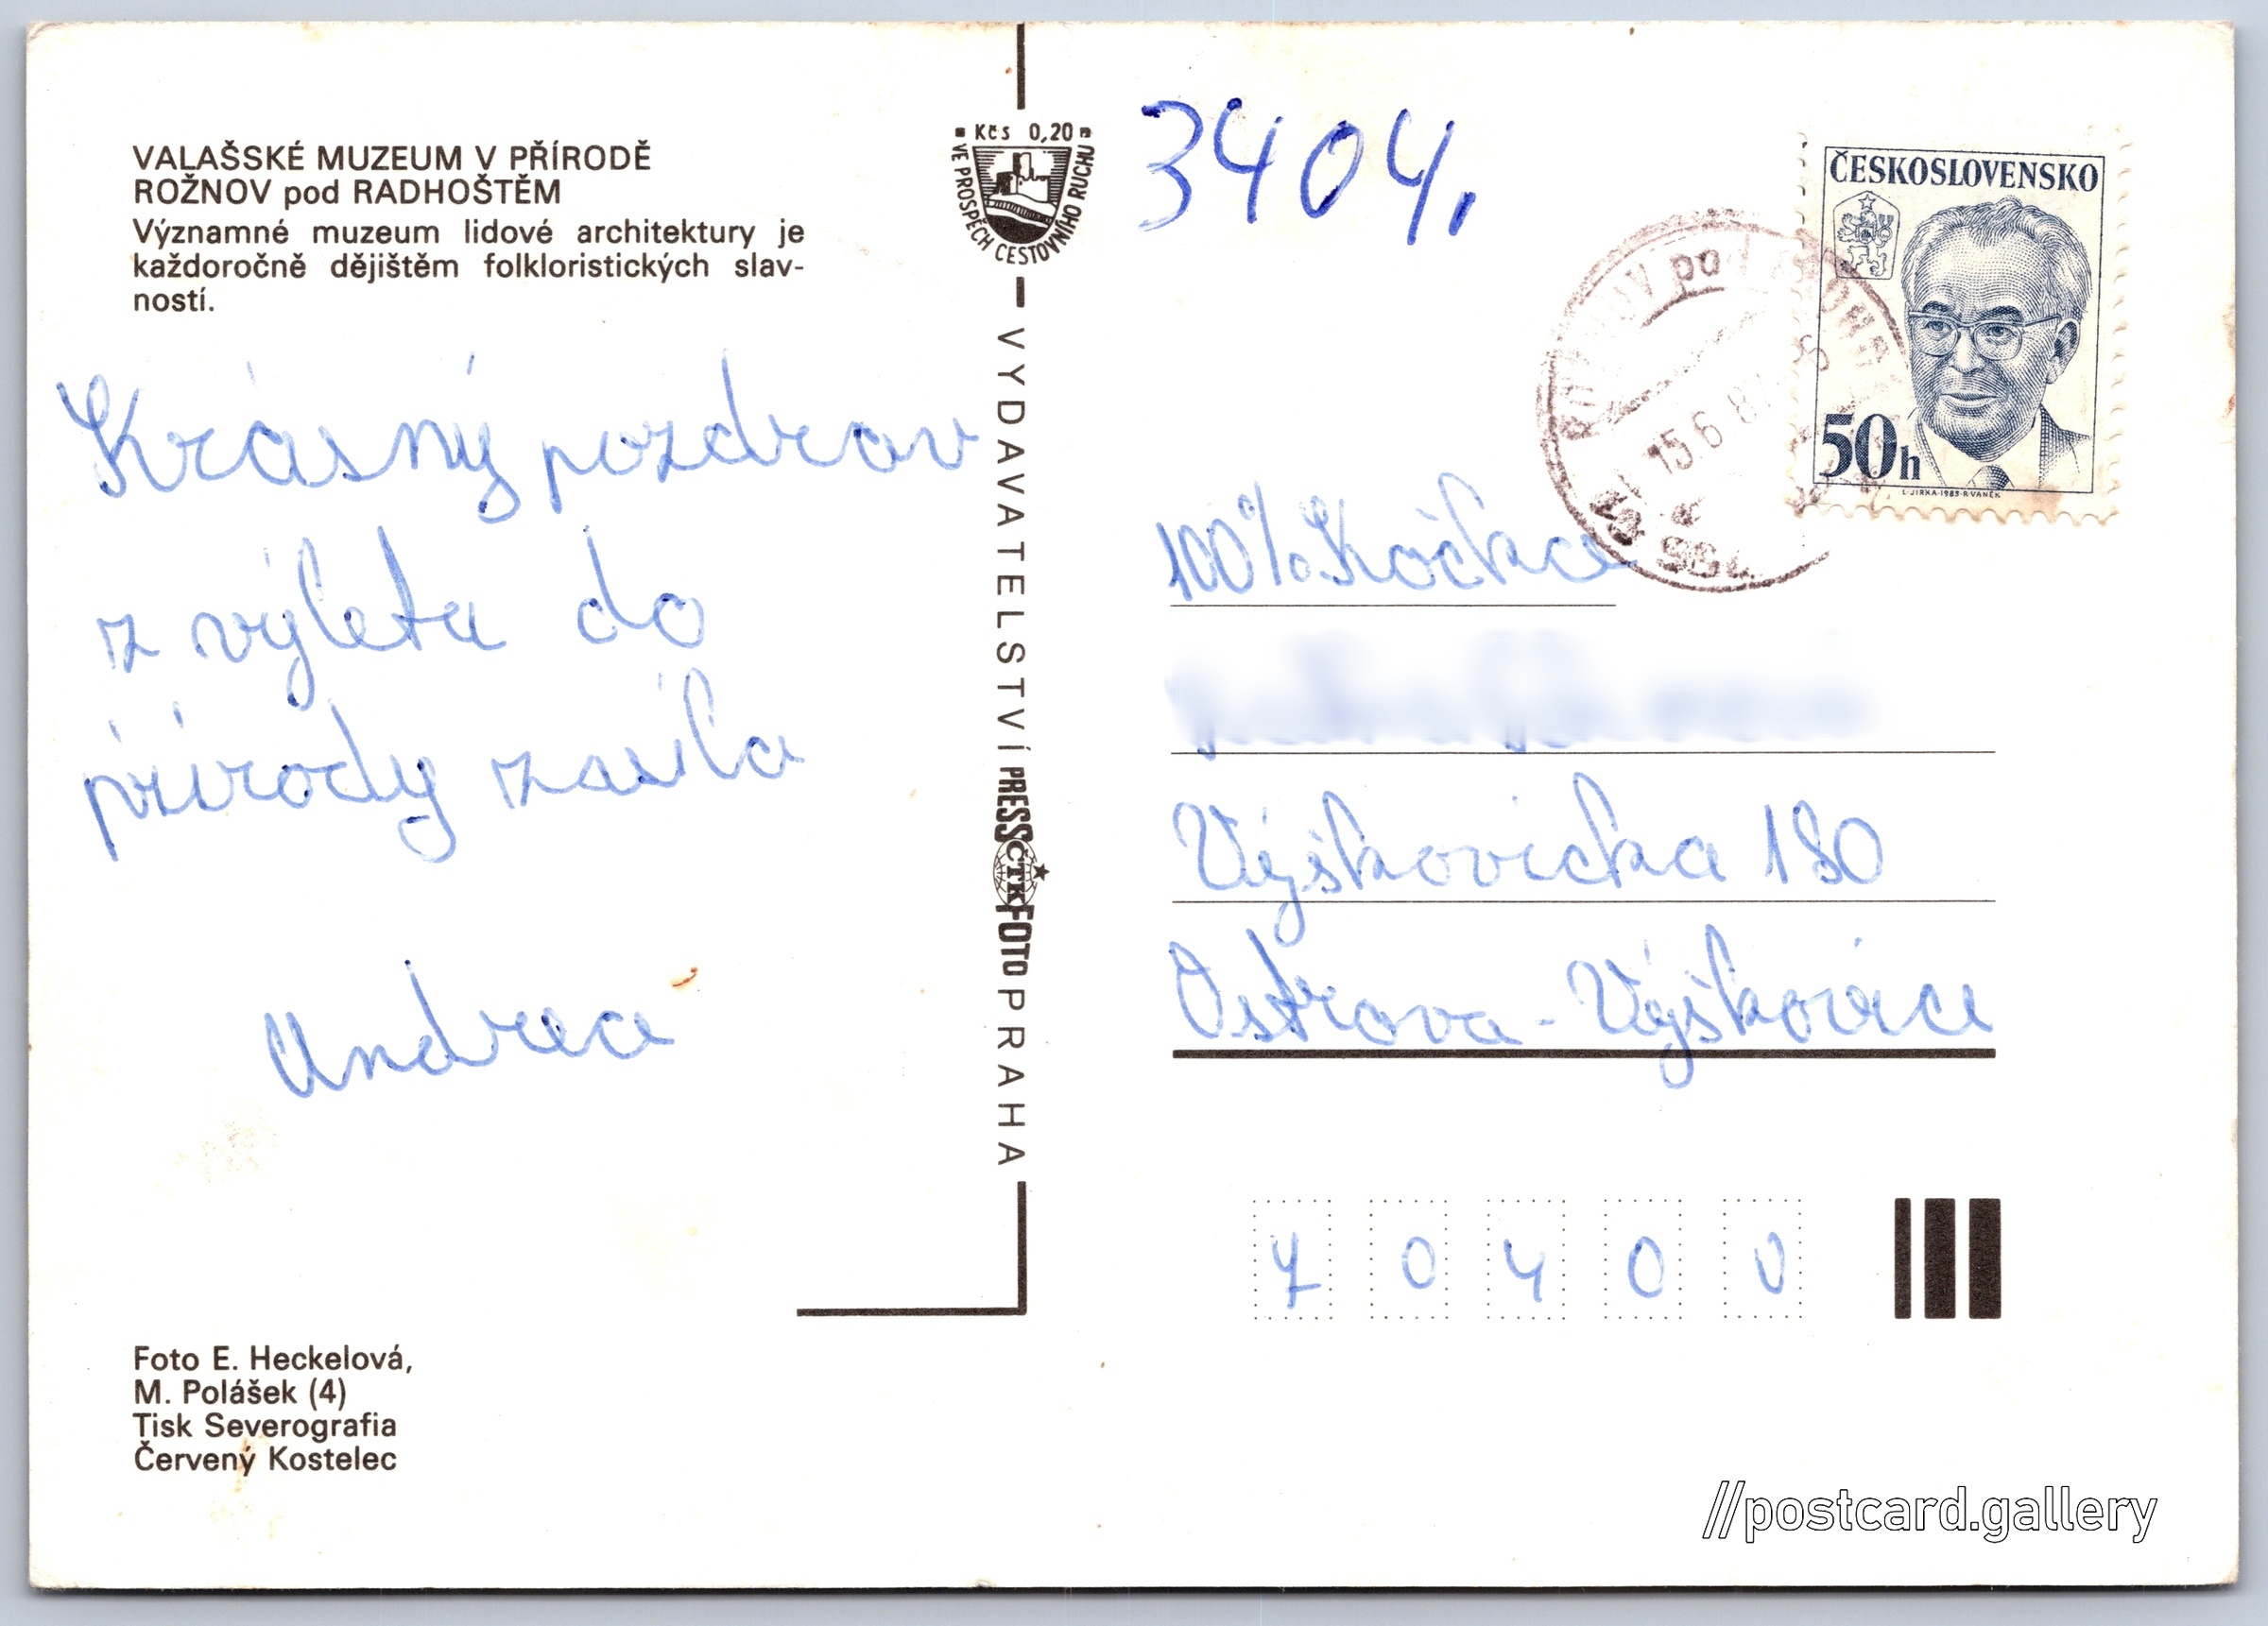 VALAŠSKÉ MUZEUM V PŘÍRODĚ
ROŽNOV pod RADHOŠTĚM
Významné muzeum lidové architektury je
každoročně dějištěm folkloristických slav-
ností.
Krásný pozdrav
z výletu do
přírody zasílá
Andrea
Foto E. Heckelová,
M. Polášek (4)
Tisk Severografia
Červený Kostelec
Kčs 0,20
VE PROSPĚCH CESTOVNÍHO RUCHU
VYDAVATELSTVÍ PRESSFOTO PRAHA
ČTK
3404.
ČESKOSLOVENSKO
50h
L. JIRKA-1983-R. VANĚK
15.6.8
100% Kočka
Výškovická 180
Ostrava - Výškovice
70400
//postcard.gallery